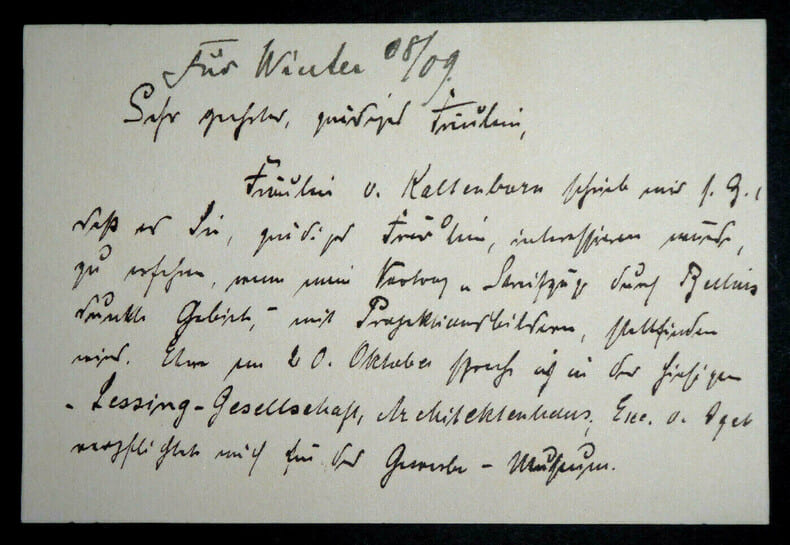 Für Winter 08/09.
Sehr geehrtes, gnädiges Fräulein,
Fräulein v. Kaltenborn schrieb mir s. Z.,
daß es Sie, gnädiges Fräulein, interessieren würde,
zu erfahren, wann mein Vortrag „Streifzüge durch Berlins
dunkle Gebiete," mit Projektionsbildern, stattfinden
wird. Am 20. Oktober spreche ich in der hiesigen
Lessing-Gesellschaft, Architektenhaus, Exc. v.
verpflichtete mich für das Gewerbe-Museum.